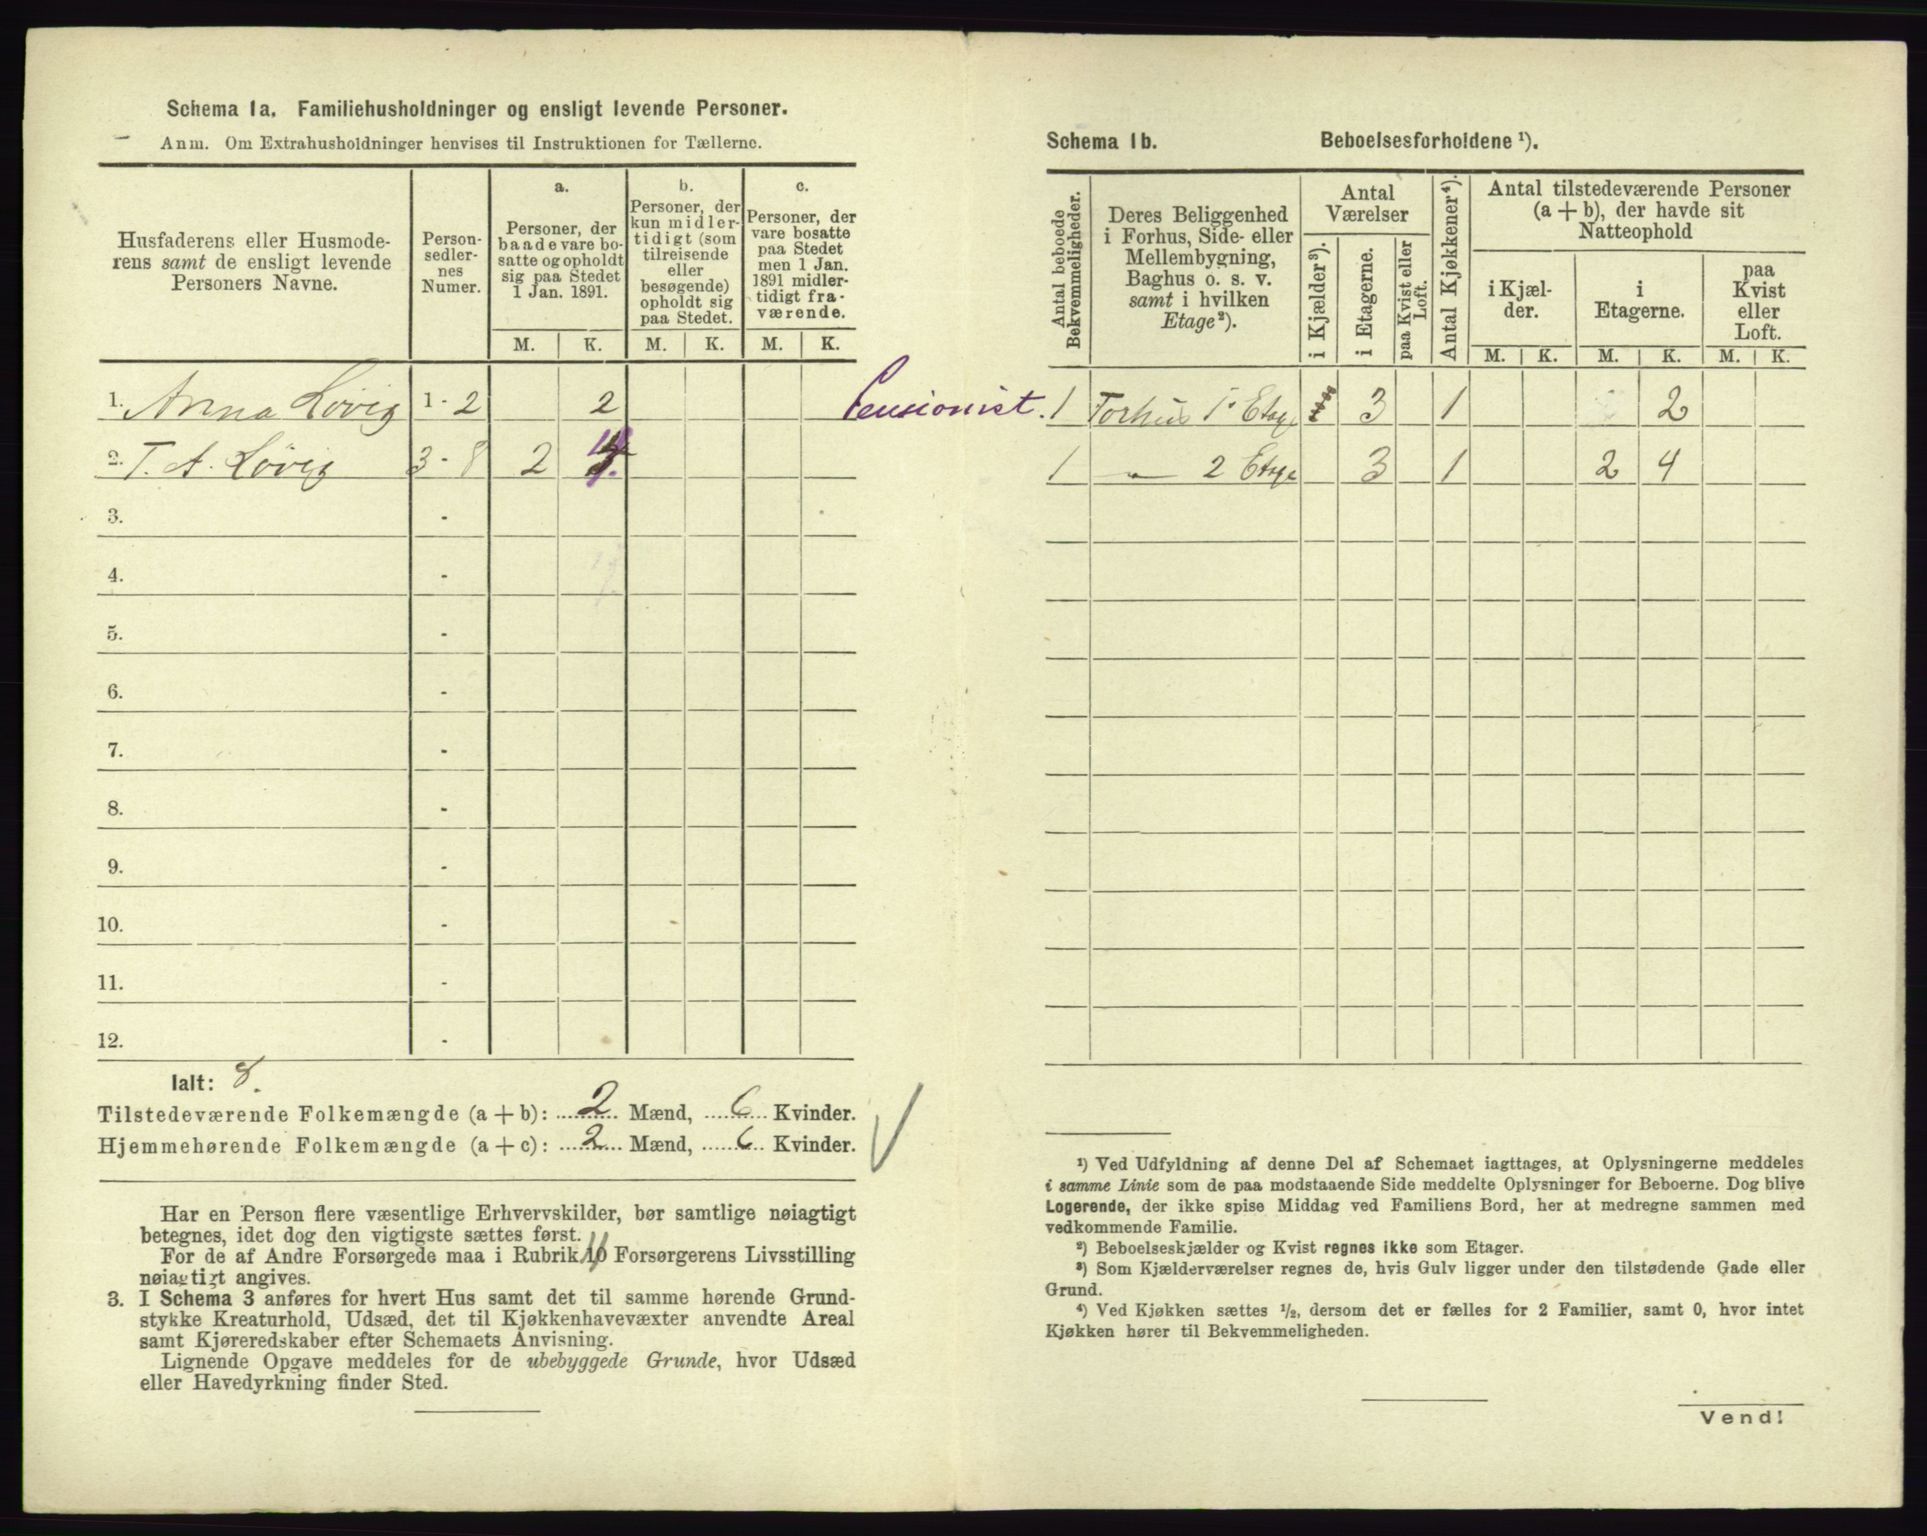 Schema 1a. Familiehusholdninger og ensligt levende Personer.
Anm. Om Extrahusholdninger henvises til Instruktionen for Tællerne.
Husfaderens eller Husmode-
rens samt de ensligt levende
Personers Navne.
Person-
sedler-
nes
Numer.
a.
Personer, der
baade vare bo-
satte og opholdt
sig paa Stedet
1 Jan. 1891.
b.
Personer, der
kun midler-
tidigt (som
tilreisende
eller
besøgende)
opholdt sig
paa Stedet.
c.
Personer, der
vare bosatte
paa Stedet
men 1 Jan.
1891 midler-
tidigt fra-
værende.
M. K. M. K. M. K.
1. Anna Løvig 1 - 2 2 Pensionist.
2. T. A. Løvig 3 - 8 2 4
3. -
4. -
5. -
6. -
7. -
8. -
9. -
10. -
11. -
12. -
Ialt: 8.
Tilstedeværende Folkemængde (a + b): 2 Mænd, 6 Kvinder.
Hjemmehørende Folkemængde (a + c): 2 Mænd, 6 Kvinder.
Har en Person flere væsentlige Erhvervskilder, bør samtlige nøiagtigt
betegnes, idet dog den vigtigste sættes først.
For de af Andre Forsørgede maa i Rubrik 11 Forsørgerens Livsstilling
nøiagtigt angives.
3. I Schema 3 anføres for hvert Hus samt det til samme hørende Grund-
stykke Kreaturhold, Udsæd, det til Kjøkkenhavevæxter anvendte Areal
samt Kjøreredskaber efter Schemaets Anvisning.
Lignende Opgave meddeles for de ubebyggede Grunde, hvor Udsæd
eller Havedyrkning finder Sted.
Schema 1b. Beboelsesforholdene ¹).
Antal beboede
Bekvemmeligheder.
Deres Beliggenhed
i Forhus, Side- eller
Mellembygning,
Baghus o. s. v.
samt i hvilken
Etage²).
Antal
Værelser
i Kjælder³).
i Etagerne.
paa Kvist eller
Loft.
Antal Kjøkkener⁴).
Antal tilstedeværende Personer
(a + b), der havde sit
Natteophold
i Kjæl-
der.
i
Etagerne.
paa
Kvist
eller
Loft.
M. K. M. K. M. K.
1 Forhus 1. Etage 3 1 2
1 — 2 Etage 3 1 2 4
¹) Ved Udfyldning af denne Del af Schemaet iagttages, at Oplysningerne meddeles
i samme Linie som de paa modstaaende Side meddelte Oplysninger for Beboerne. Dog blive
Logerende, der ikke spise Middag ved Familiens Bord, her at medregne sammen med
vedkommende Familie.
²) Beboelseskjælder og Kvist regnes ikke som Etager.
³) Som Kjælderværelser regnes de, hvis Gulv ligger under den tilstødende Gade eller
Grund.
⁴) Ved Kjøkken sættes ½, dersom det er fælles for 2 Familier, samt 0, hvor intet
Kjøkken hører til Bekvemmeligheden.
Vend!